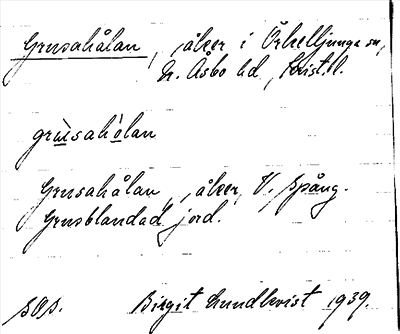 Grusahålan, åker i Örkelljunga sn,
N. Åsbo hd, Krist. l.
grùsahòlan
Grusahålan, åker, V. Spång.
Grusblandad jord.
s0s. Birgit Lundkvist 1939.